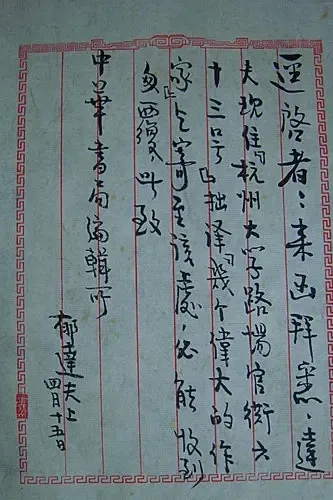 逕啓者：来函拜悉，達
夫現住杭州大学路場官衖六
十三号，拙译「幾个偉大的作
家」乞寄至该處，必能收到
匆覆此致
中華書局编輯所
郁達夫上
四月十五日